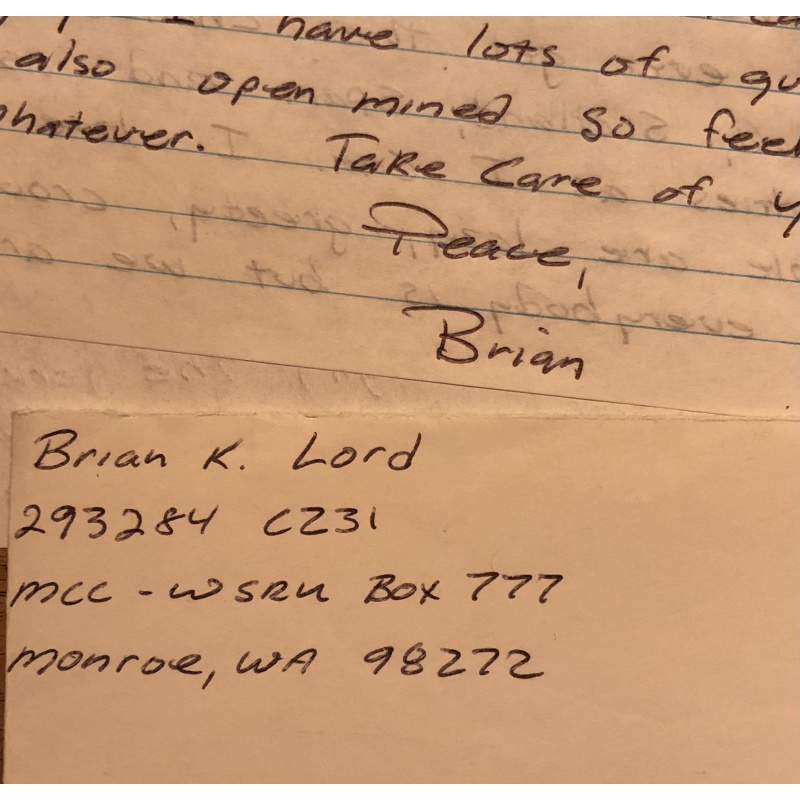 I have lots of
also open mined so feel
whatever. Take Care of
Peace,
Brian
Brian K. Lord
293284 C231
MCC - WSRU Box 777
Monroe, WA 98272